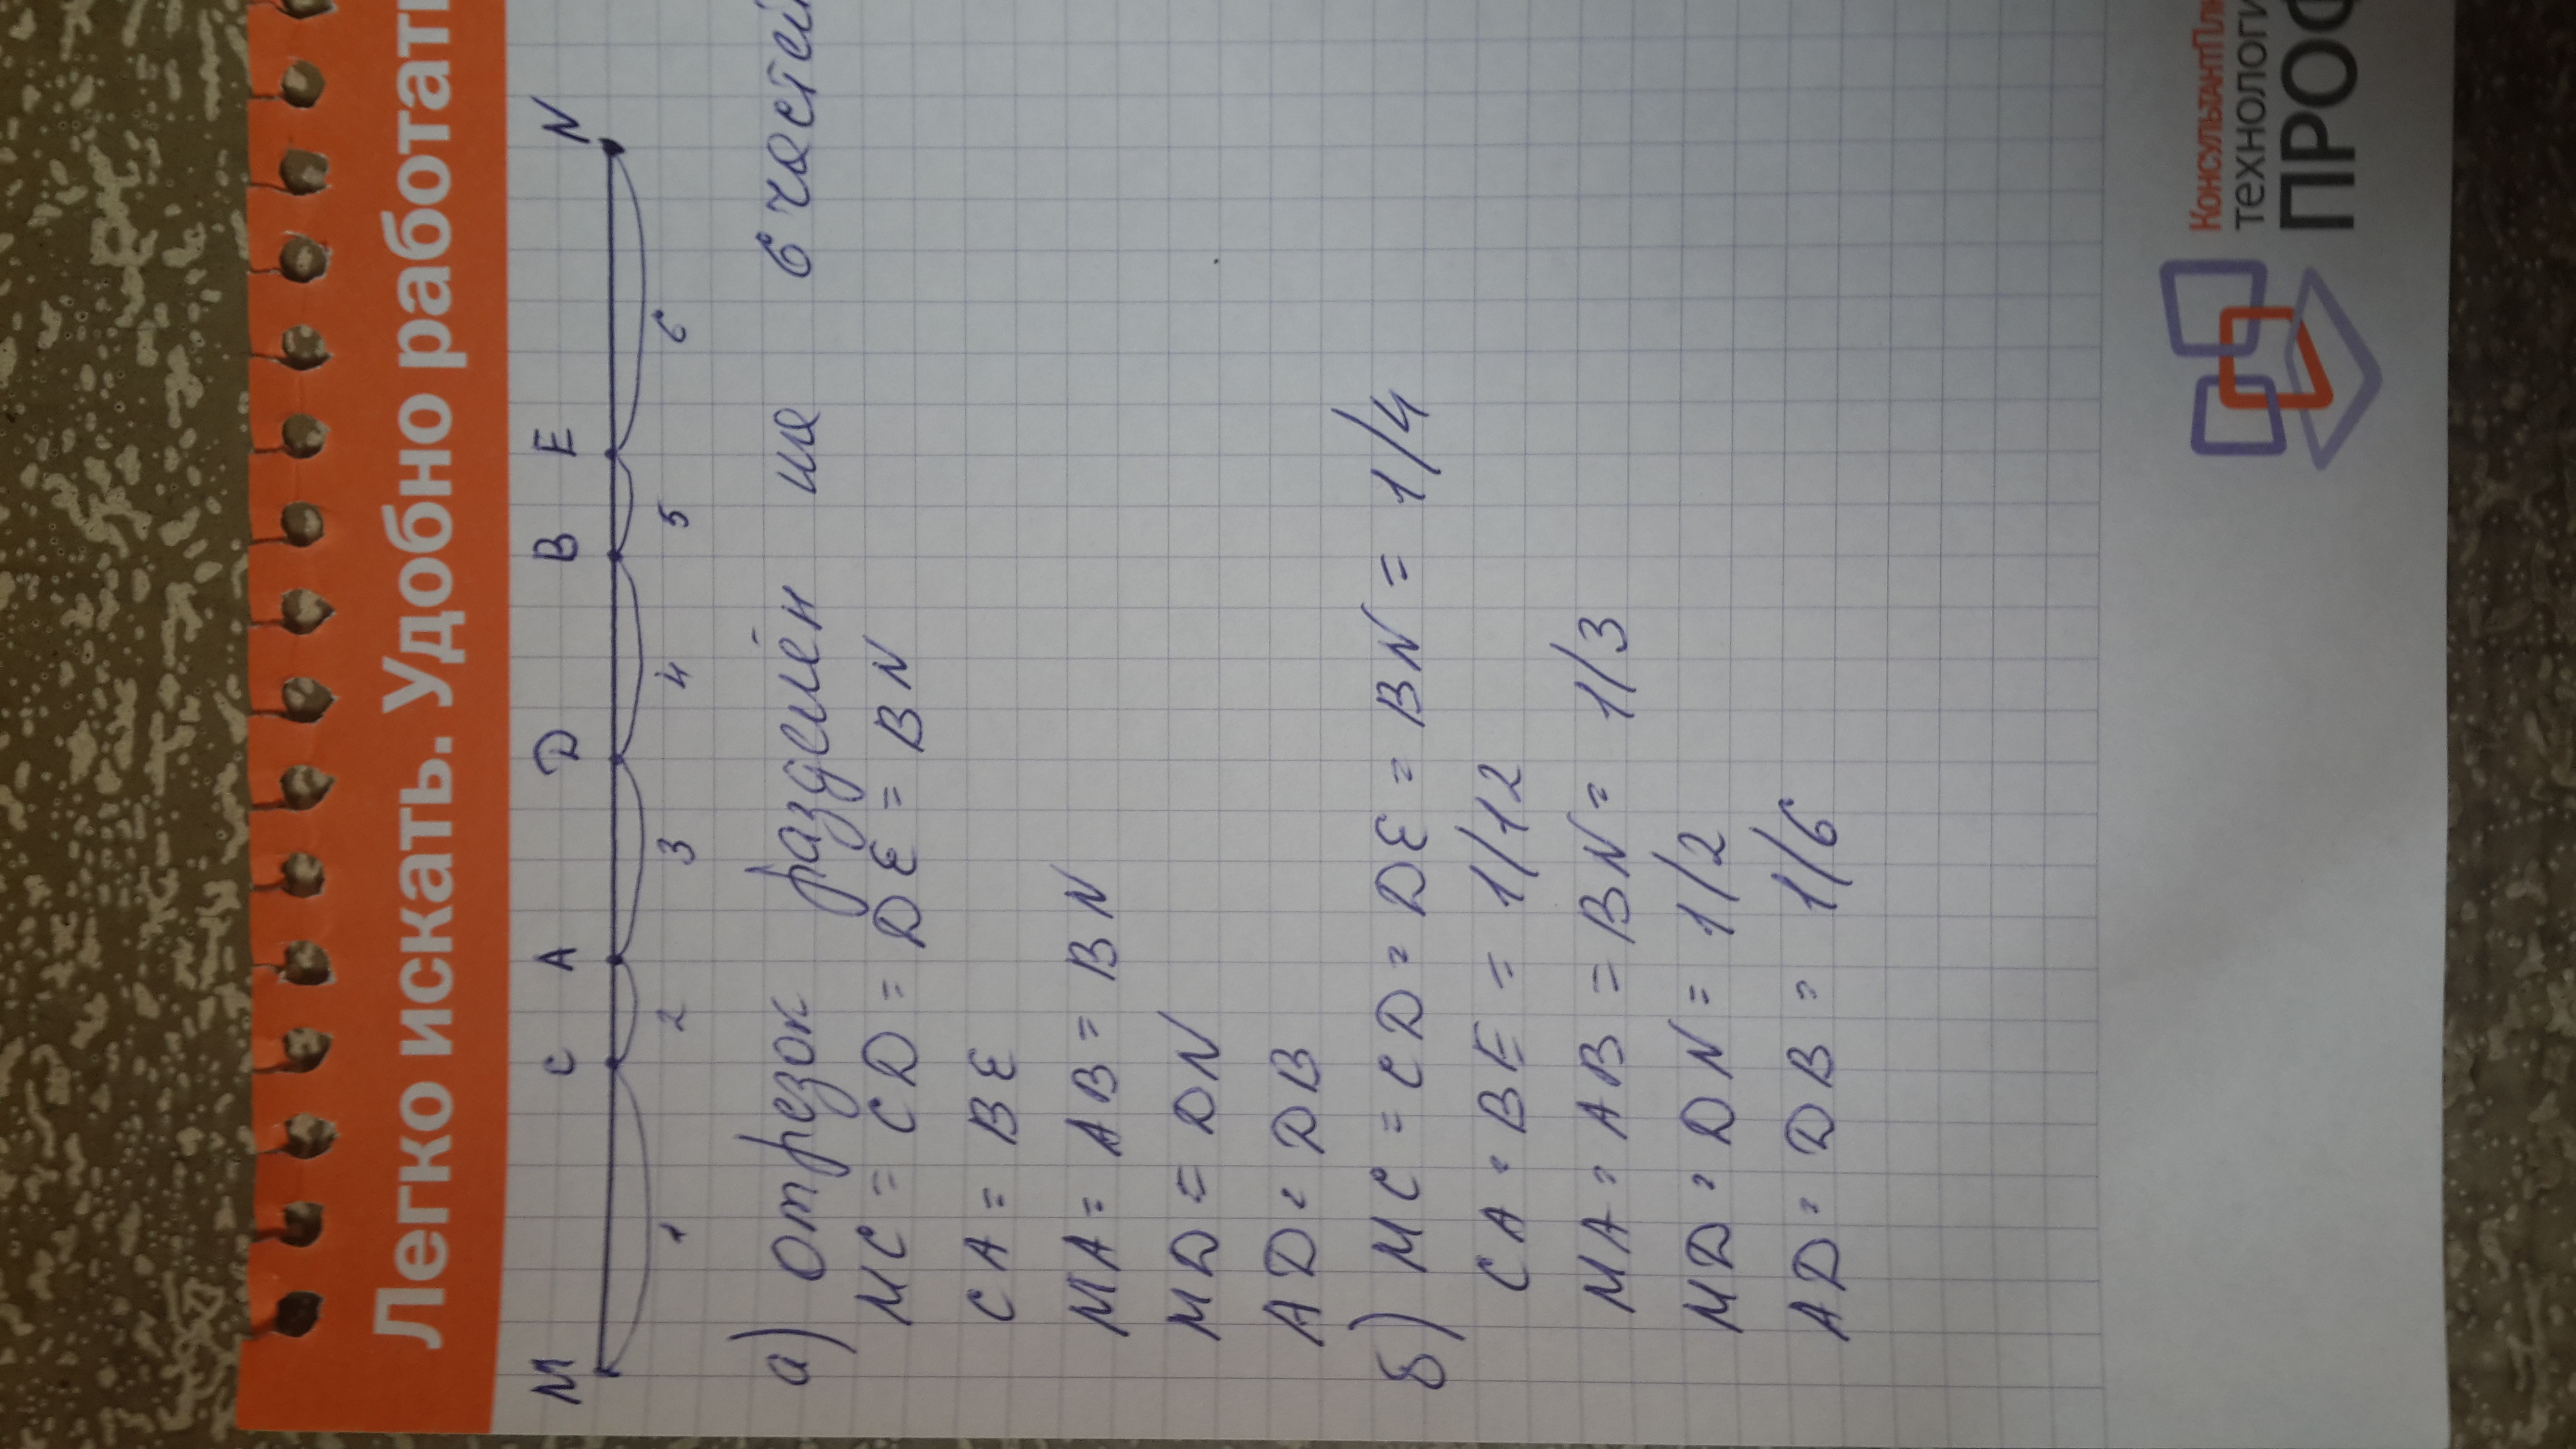 Легко искать. Удобно работать
M C A D B E N
1 2 3 4 5 6
а) Отрезок разделён на 6 частей
MC = CD = DE = BN
CA = BE
MA = AB = BN
MD = DN
AD = DB
б) MC = CD = DE = BN = 1/4
CA = BE = 1/12
MA = AB = BN = 1/3
MD = DN = 1/2
AD = DB = 1/6
технологи
ПРОФ